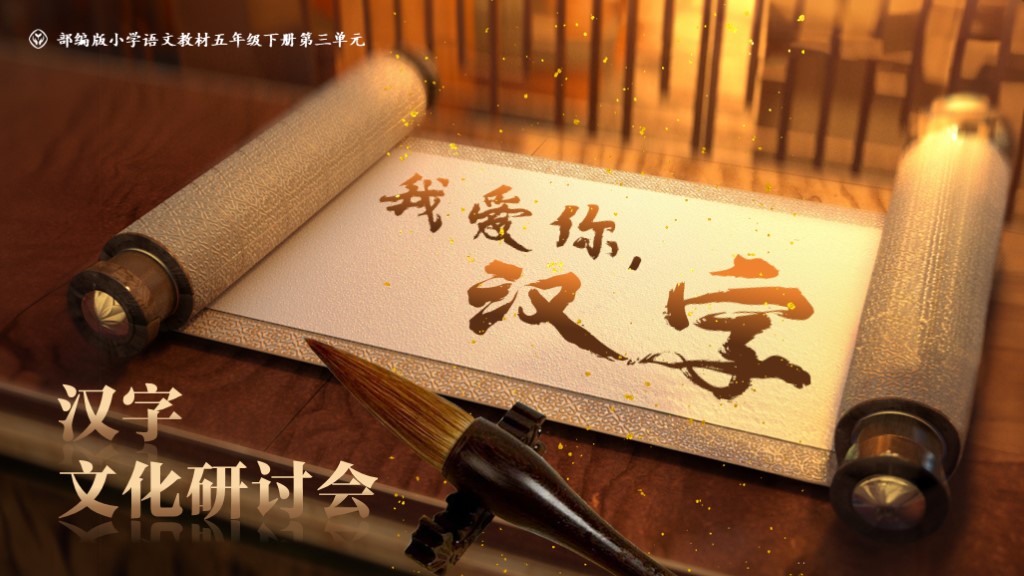 部编版小学语文教材五年级下册第三单元
我爱你，
汉字
汉字
文化研讨会